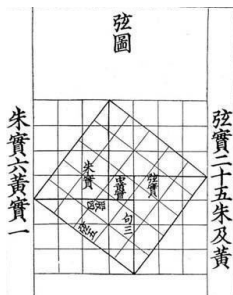 弦圖
弦實二十五朱及黃
朱實六黃實一
朱實
弦實
句三
弦五